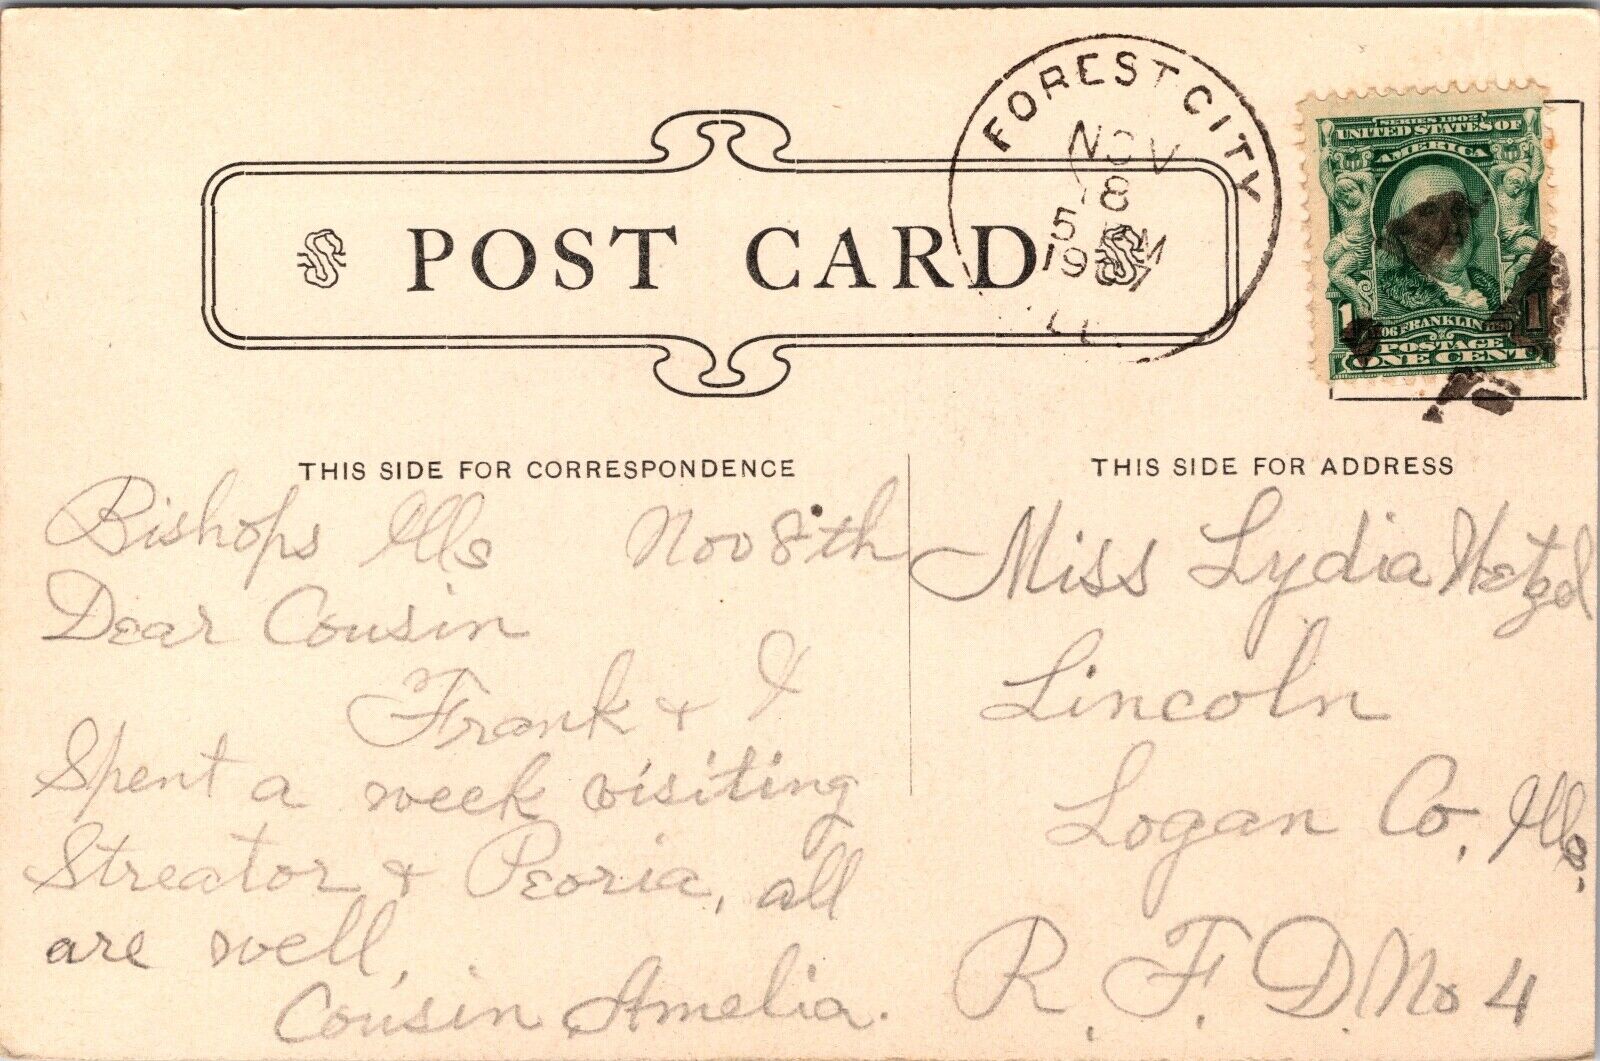 FOREST CITY
NOV
8
5 PM
1907
ILL
SERIES 1902
UNITED STATES OF
AMERICA
1
1
FRANKLIN 1790
POSTAGE
ONE CENT
POST CARD
THIS SIDE FOR CORRESPONDENCE
Bishops Ills Nov 8th
Dear Cousin
Frank & I
Spent a week visiting
Streator & Peoria, all
are well,
Cousin Amelia.
THIS SIDE FOR ADDRESS
Miss Lydia Hetzel
Lincoln
Logan Co, Ills.
R. F. D. No 4